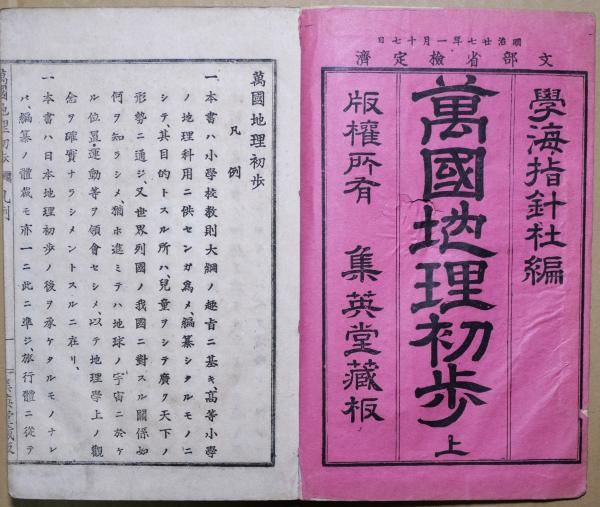 明治廿七年一月十七日
文部省檢定濟
學海指針社編
萬國地理初步 上
版權所有 集英堂藏板
萬國地理初步
凡例
一本書ハ小學校敎則大綱ノ趣旨ニ基キ、高等小學
ノ地理科用ニ供センガ爲メ、編纂シタルモノニ
シテ、其目的トスル所ハ、兒童ヲシテ廣ク天下ノ
形勢ニ通ジ、又世界列國ノ我國ニ對スル關係如
何ヲ知ラシメ、猶ホ進ミテハ地球ノ宇宙ニ於ケ
ル位置運動等ヲ領會セシメ、以テ地理學上ノ觀
念ヲ確實ナラシメントスルニ在リ、
一本書ハ日本地理初步ノ後ヲ承ケタルモノナレ
バ、編纂ノ體裁モ亦一ニ此ニ準ジ、旅行體ニ從テ
萬國地理初步 凡例 一 集英堂藏板